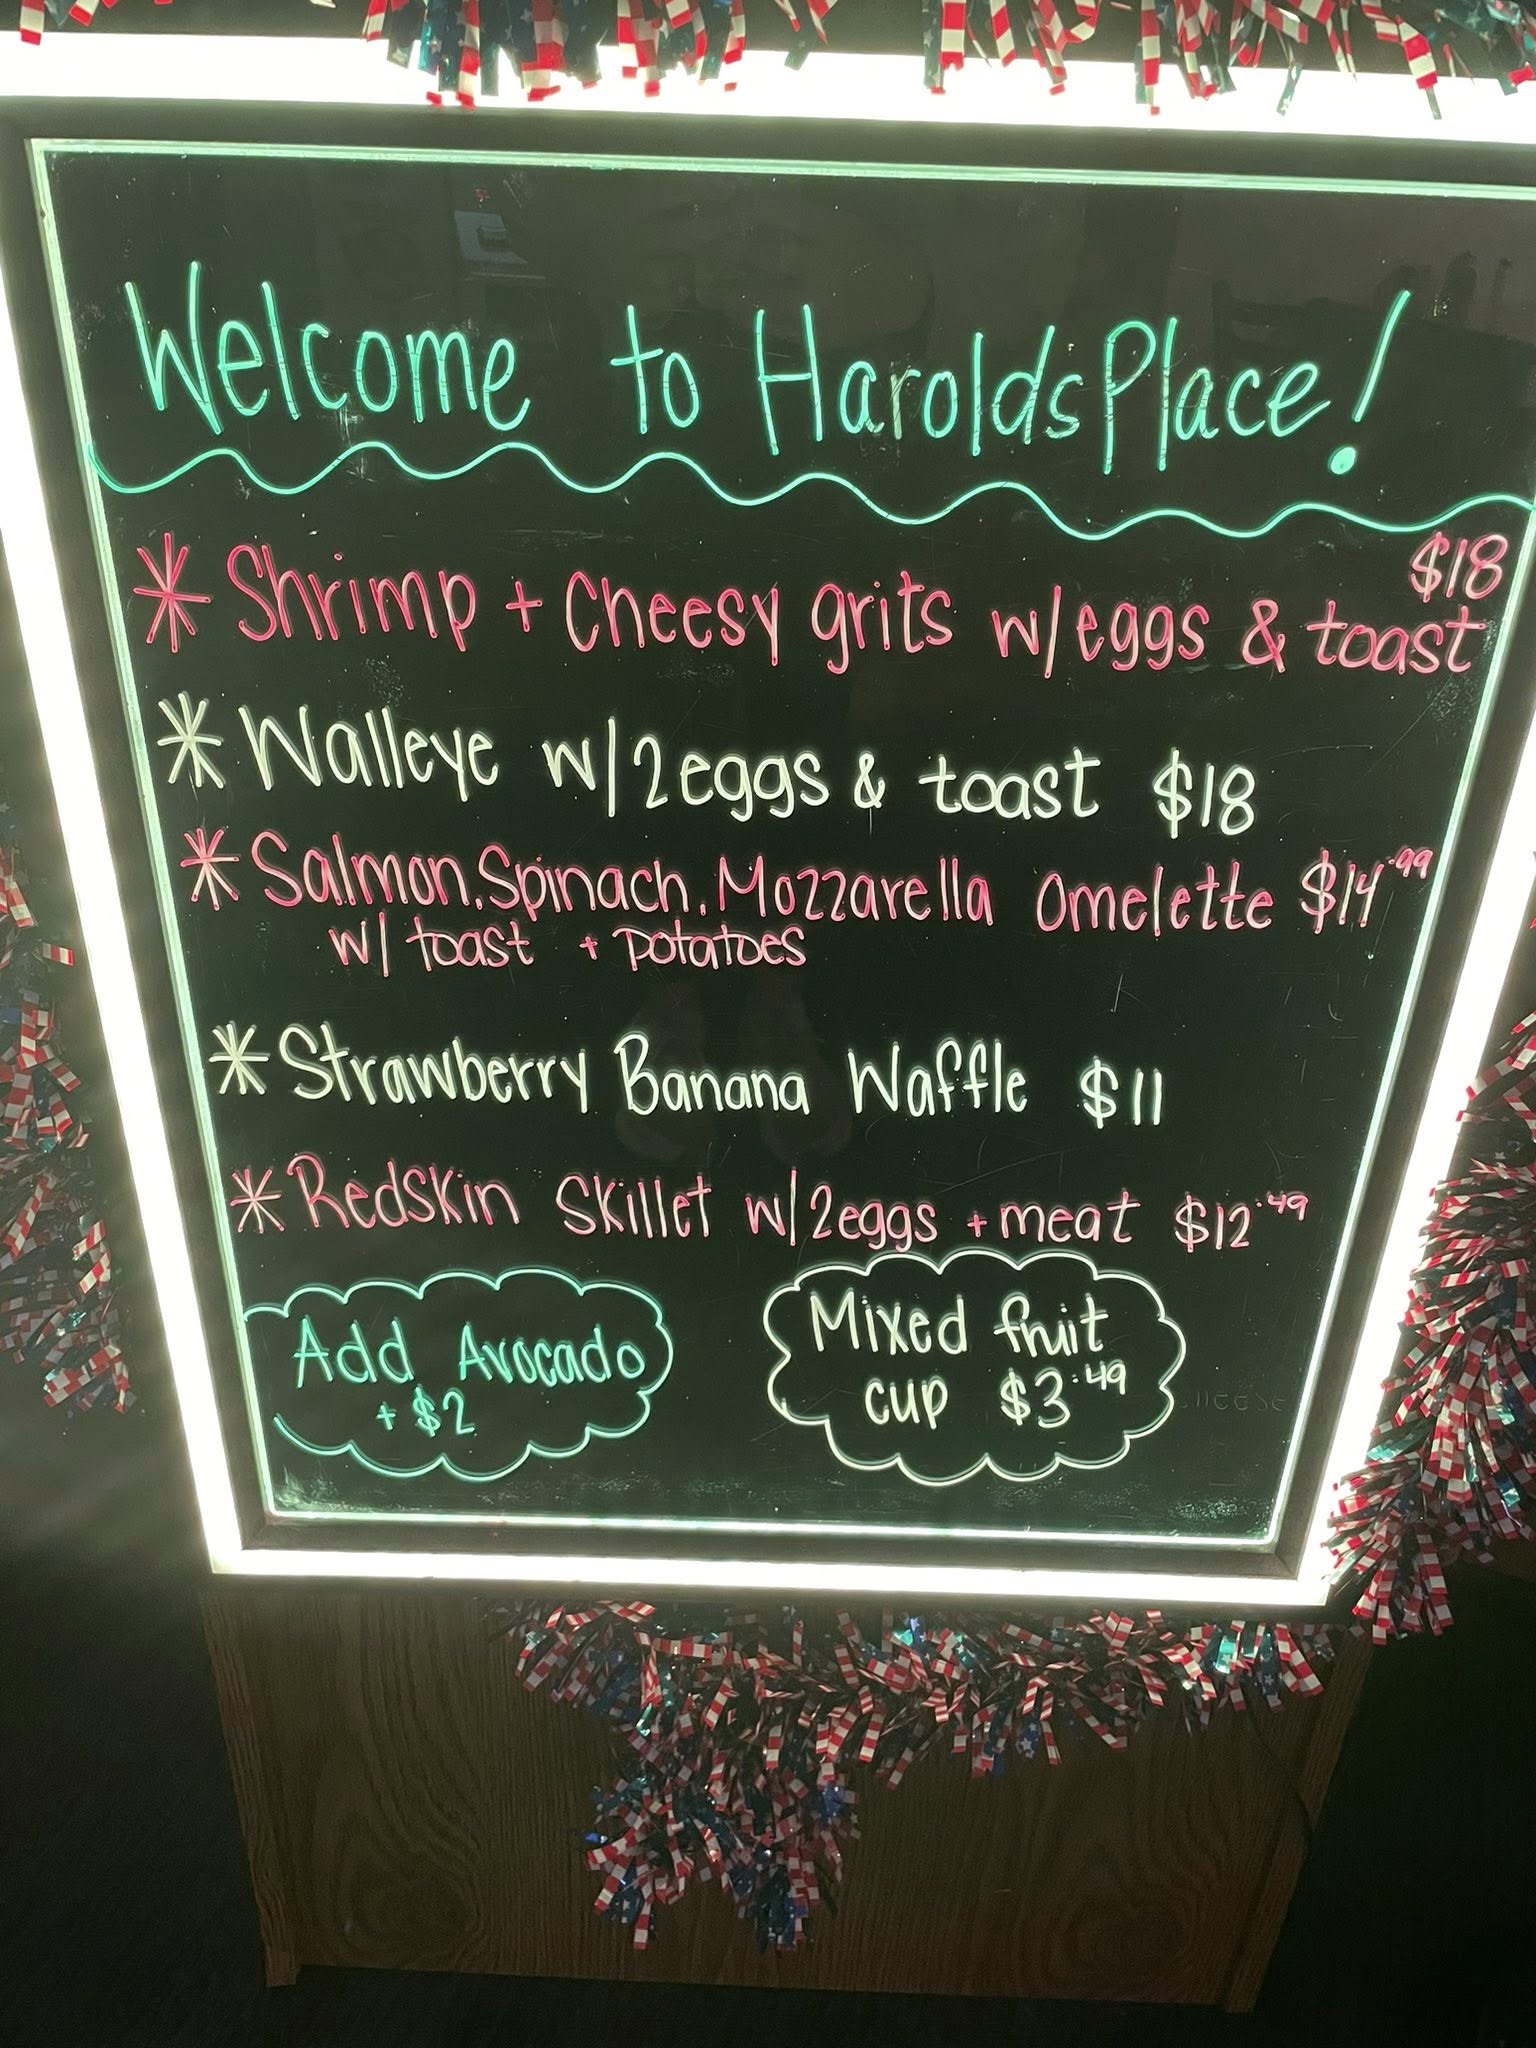 Welcome to Harolds Place!
$18
* Shrimp + Cheesy grits w/ eggs & toast
* Walleye w/ 2 eggs & toast $18
* Salmon, Spinach, Mozzarella Omelette $14.99
w/ toast + potatoes
* Strawberry Banana Waffle $11
* Redskin Skillet w/ 2 eggs + meat $12.49
Add Avocado
+ $2
Mixed fruit
cup $3.49